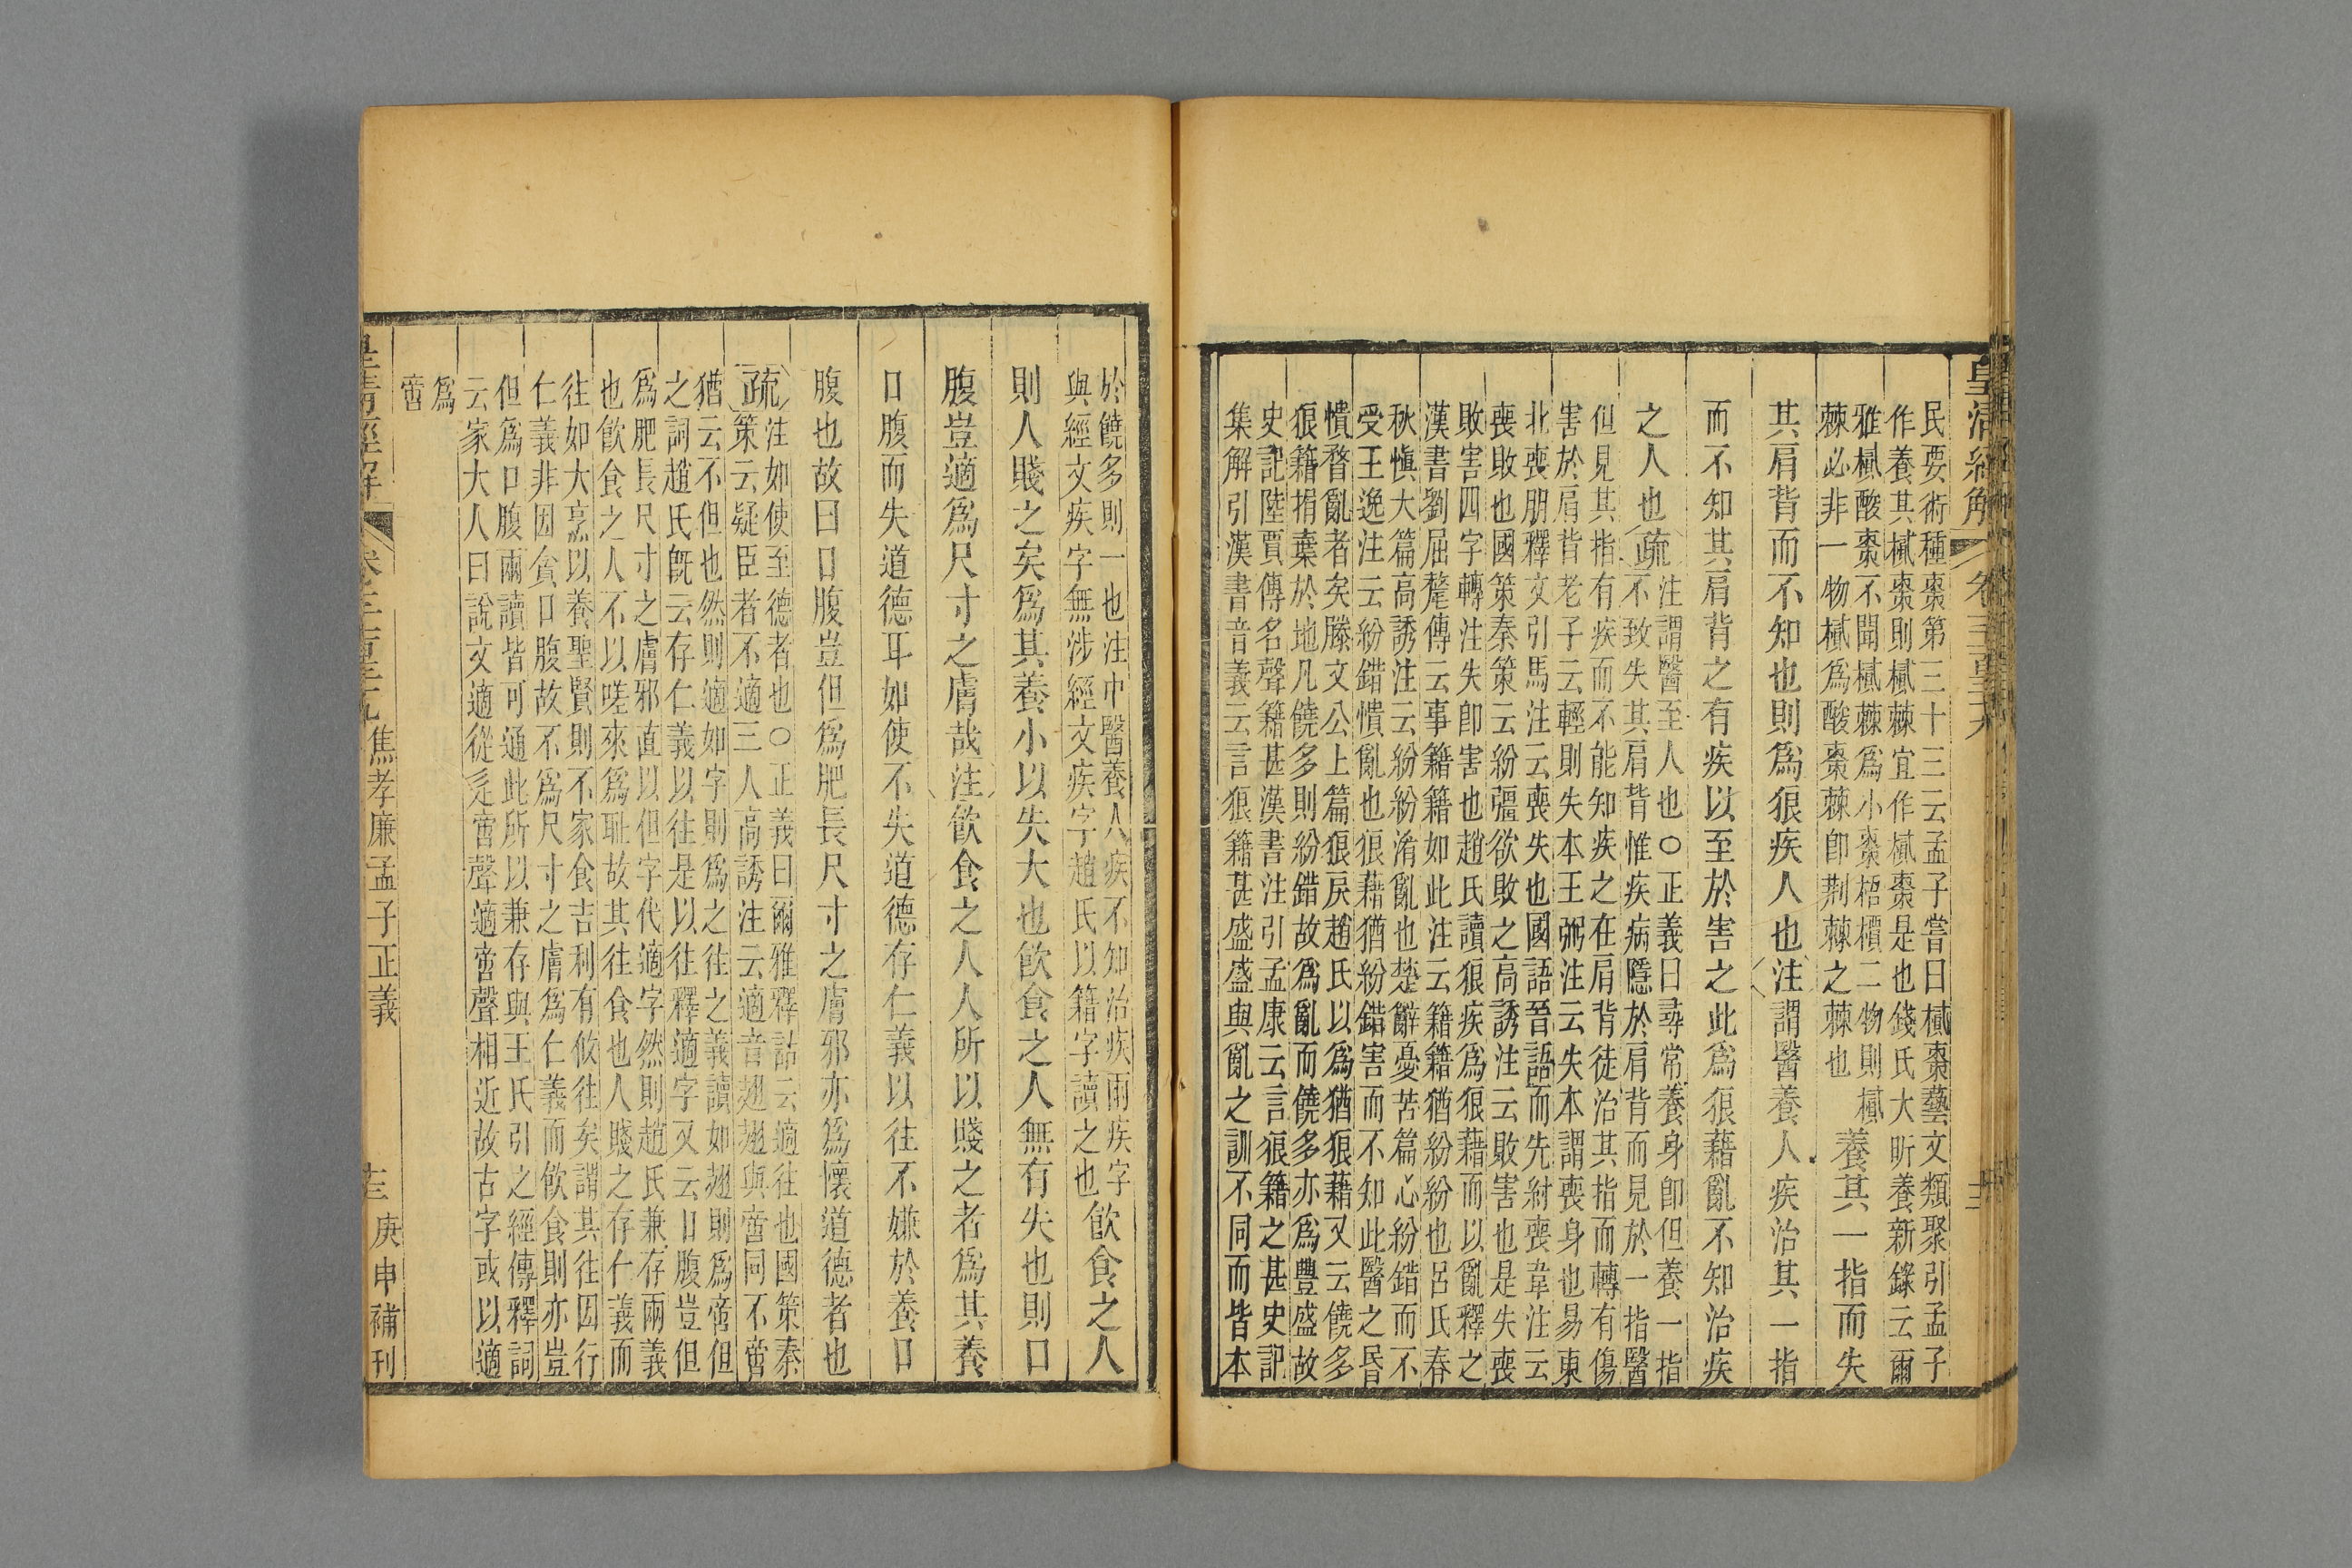 皇清經解
民要術種棗第三十三云孟子嘗曰樲棗藝文類聚引孟子
作養其樲棗則樲棘宜作樲棗是也錢氏大昕養新錄云爾
雅樲酸棗不聞樲棘爲小棗梧檟二物則樲
棘必非一物樲爲酸棗棘卽荆棘之棘也
養其一指而失
其肩背而不知也則爲狼疾人也注謂醫養人疾治其一指
而不知其肩背之有疾以至於害之此爲狼藉亂不知治疾
之人也疏
注謂醫至人也○正義曰尋常養身卽但養一指
不致失其肩背惟疾病隱於肩背而見於一指醫
但見其指有疾而不能知疾之在肩背徒治其指而轉有傷
害於肩背老子云輕則失本王弼注云失本謂喪身也易東
北喪朋釋文引馬注云喪失也國語晉語而先紂喪韋注云
喪敗也國策秦策云紛彊欲敗之高誘注云敗害也是失喪
敗害四字轉注失卽害也趙氏讀狼疾爲狼藉而以亂釋之
漢書劉屈氂傳云事籍籍如此注云籍籍猶紛紛也呂氏春
秋愼大篇高誘注云紛紛淆亂也楚辭憂苦篇心紛錯而不
受王逸注云紛錯憒亂也狼藉猶紛錯害而不知此醫之昏
憒瞀亂者矣滕文公上篇狼戾趙氏以爲猶狼藉又云饒多
狼籍捐棄於地凡饒多則紛錯故爲亂而饒多亦爲豐盛故
史記陸賈傳名聲籍甚漢書注引孟康云言狼籍之甚史記
集解引漢書音義云言狼籍甚盛盛與亂之訓不同而皆本
於饒多則一也注中醫養人疾不知治疾兩疾字
與經文疾字無涉經文疾字趙氏以籍字讀之也
飮食之人
則人賤之矣爲其養小以失大也飮食之人無有失也則口
腹豈適爲尺寸之膚哉注飮食之人人所以賤之者爲其養
口腹而失道德耳如使不失道德存仁義以往不嫌於養口
腹也故曰口腹豈但爲肥長尺寸之膚邪亦爲懷道德者也
疏
注如使至德者也○正義曰爾雅釋詁云適往也國策秦
策云疑臣者不適三人高誘注云適音翅翅與啻同不啻
猶云不但也然則適如字則爲之往之義讀如翅則爲啻但
之詞趙氏旣云存仁義以往是以往釋適字又云口腹豈但
爲肥長尺寸之膚邪直以但字代適字然則趙氏兼存兩義
也飮食之人不以嗟來爲耻故其往食也人賤之存仁義而
往如大烹以養聖賢則不家食吉利有攸往矣謂其往因行
仁義非因貪口腹故不爲尺寸之膚爲仁義而飮食則亦豈
但爲口腹兩讀皆可通此所以兼存與王氏引之經傳釋詞
云家大人曰說文適從辵啻聲適啻聲相近故古字或以適
爲
啻
皇清經解
焦孝廉孟子正義
庚申補刊